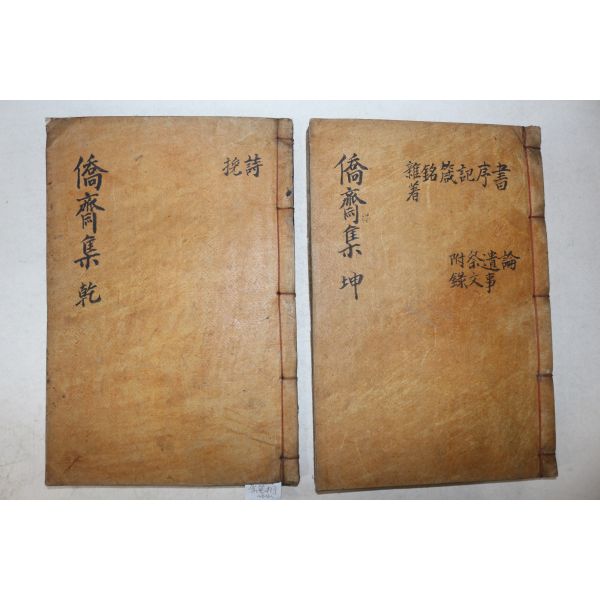 僑齋集 乾
詩
挽
僑齋集 坤
書
序
記
箴
銘
雜著
論
遺事
祭文
附錄